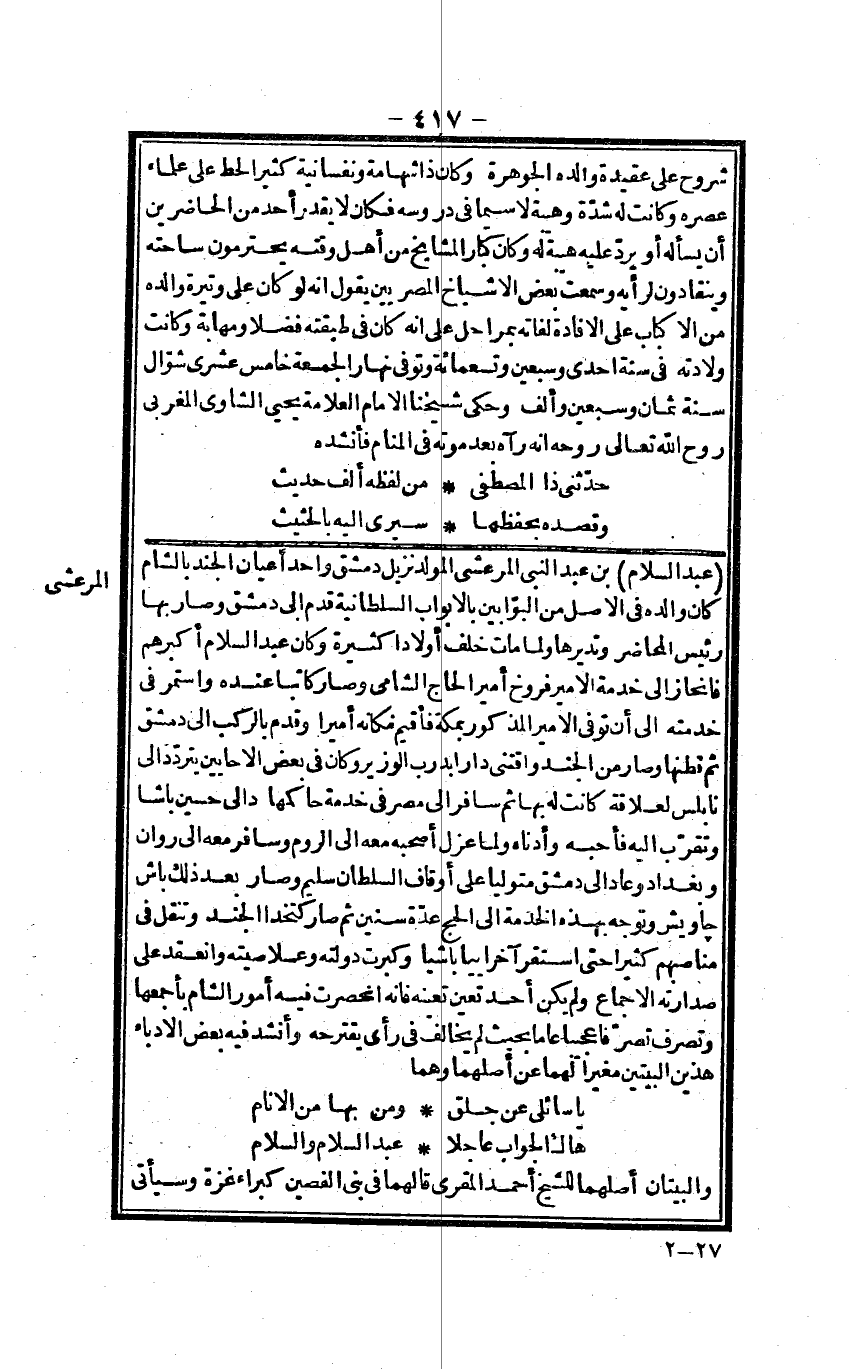 - ٤١٧ -
شروح على عقيدة والده الجوهرة وكان ذا شهامة ونفسانية كثير الحط على علماء
عصره وكانت له شدّة وهيبة لا سيما فى دروسه فكان لا يقدر أحد من الحاضرين
أن يسأله أو يردّ عليه هيبة له وكان كبار المشايخ من أهل وقته يحترمون ساحته
وينقادون لرأيه وسمعت بعض الاشياخ المصريين يقول انه لو كان على وتيرة والده
من الاكباب على الافادة لفاته بمراحل على انه كان فى طبقته فضلا ومهابة وكانت
ولادته فى سنة احدى وسبعين وتسعمائة وتوفى نهار الجمعة خامس عشرى شوّال
سنة ثمان وسبعين وألف وحكى شيخنا الامام العلامة يحيى الشاوى المغربى
روح الله تعالى روحه انه رآه بعد موته فى المنام فأنشده
حدّثنى ذا المصطفى * من لفظه ألف حديث
وقصده بحفظها * سيرى اليه بالحثيث
(عبد السلام) بن عبد النبى المرعشى المولد نزيل دمشق واحد أعيان الجند بالشام
المرعشى
كان والده فى الاصل من البوّابين بالابواب السلطانية قدم الى دمشق وصار بها
رئيس المحاضر وتديرها ولما مات خلف أولادا كثيرة وكان عبد السلام أكبرهم
فانحاز الى خدمة الامير فروخ أمير الحاج الشامى وصار كاتبا عنده واستمر فى
خدمته الى أن توفى الامير المذكور بمكة فأقيم مكانه أميرا وقدم بالركب الى دمشق
ثم قطنها وصار من الجند واقتنى دارا بدرب الوزير وكان فى بعض الاحايين يتردّد الى
نابلس لعلاقة كانت له بها ثم سافر الى مصر فى خدمة حاكمها دالى حسين باشا
وتقرّب اليه فأحبه وأدناه ولما عزل أصحبه معه الى الروم وسافر معه الى روان
وبغداد وعاد الى دمشق متوليا على أوقاف السلطان سليم وصار بعد ذلك باش
چاويش وتوجه بهذه الخدمة الى الحج عدّة سنين ثم صار كتخدا الجند وتنقل فى
مناصبهم كثيرا حتى استقر آخرا يياباشيا وكبرت دولته وعلا صيته وانعقد على
صدارته الاجماع ولم يكن أحد تعين تعينه فانه انحصرت فيه أمور الشام بأجمعها
وتصرف تصرّفا عجيبا عاما بحيث لم يخالف فى رأى يقترحه وأنشد فيه بعض الادباء
هذين البيتين مغيرا لهما عن أصلهما وهما
ياسائلى عن جلق * ومن بها من الانام
هاك الجواب عاجلا * عبد السلام والسلام
والبيتان أصلهما للشيخ أحمد المقرى قالهما فى بنى الغصين كبراء غزة وسيأتى
٢-٢٧